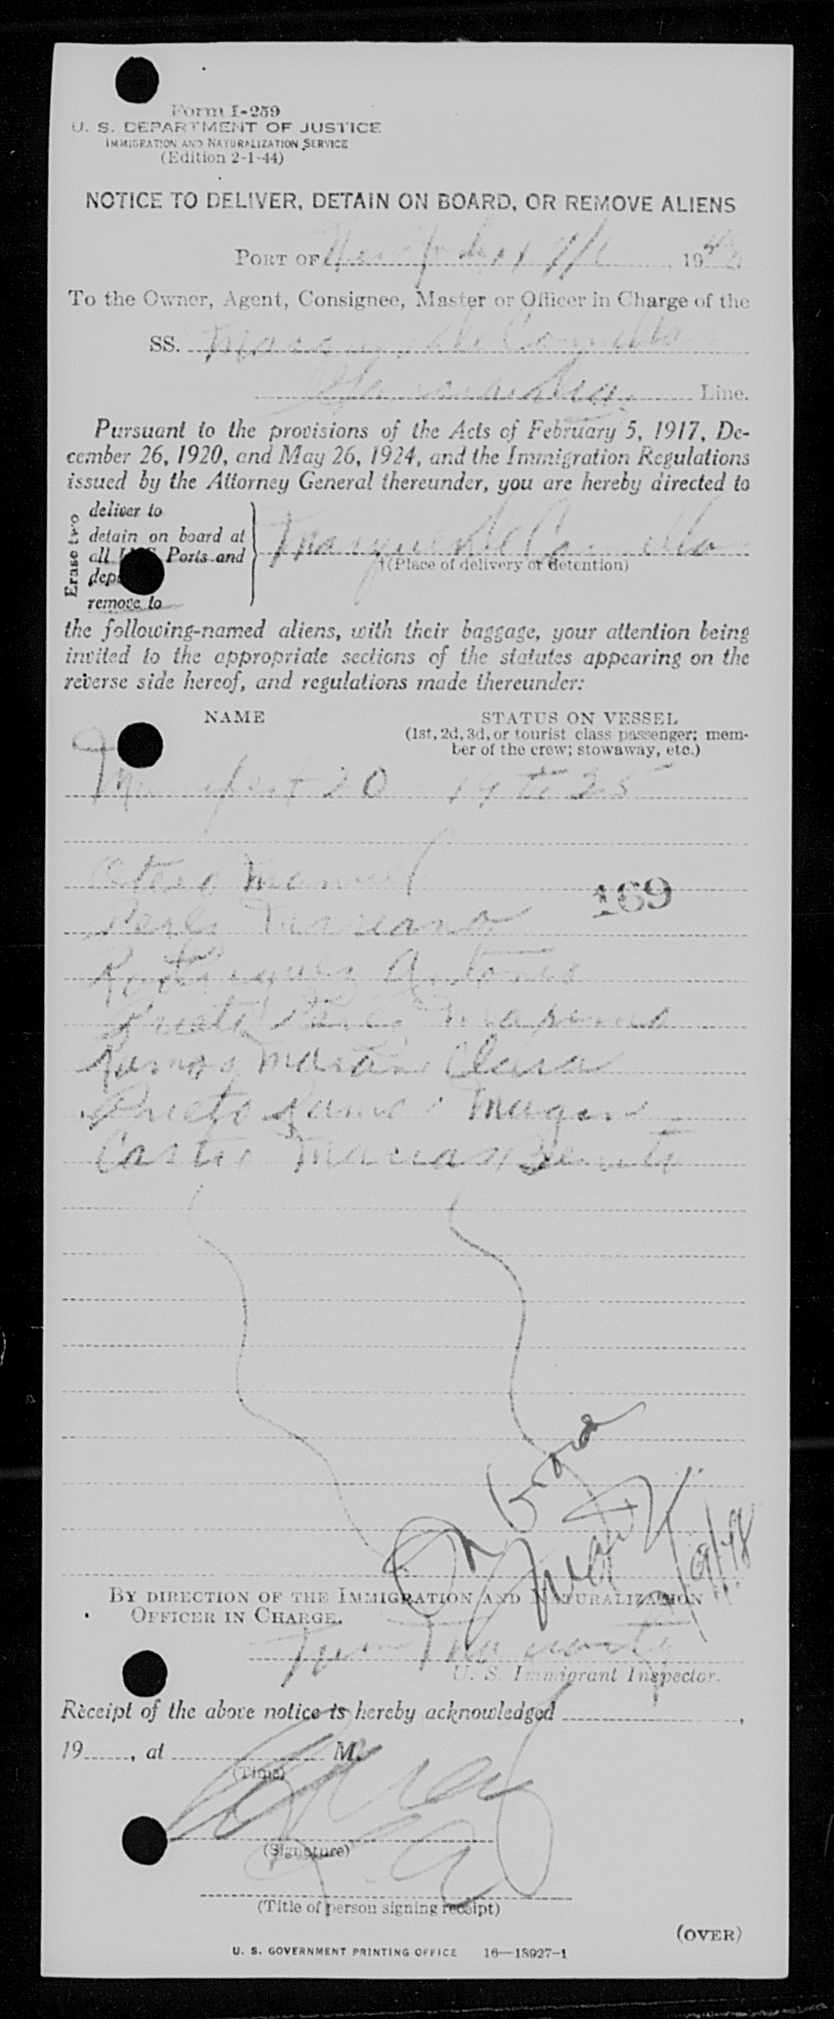 Form I-259
U. S. DEPARTMENT OF JUSTICE
IMMIGRATION AND NATURALIZATION SERVICE
(Edition 2-1-44)
NOTICE TO DELIVER, DETAIN ON BOARD, OR REMOVE ALIENS
PORT OF New York 19
To the Owner, Agent, Consignee, Master or Officer in Charge of the
SS. de Comillas
Line.
Pursuant to the provisions of the Acts of February 5, 1917, De-
cember 26, 1920, and May 26, 1924, and the Immigration Regulations
issued by the Attorney General thereunder, you are hereby directed to
Erase two
deliver to
detain on board at
all Ports and
remove to
Marques de Comillas
†(Place of delivery or detention)
the following-named aliens, with their baggage, your attention being
invited to the appropriate sections of the statutes appearing on the
reverse side hereof, and regulations made thereunder:
NAME STATUS ON VESSEL
(1st, 2d, 3d, or tourist class passenger; mem-
ber of the crew; stowaway, etc.)
Manifest 20 19 to 25
Otero Manuel
169
Perez Mariano
Rodriguez Antonio
Prieto Perez
Ramos Clara
Prieto Ramos Magin
Castro Macias Benito
On Board
9/48
BY DIRECTION OF THE IMMIGRATION AND NATURALIZATION
OFFICER IN CHARGE.
U. S. Immigrant Inspector.
Receipt of the above notice is hereby acknowledged ,
19 , at M.
(Time)
(Signature)
(Title of person signing receipt)
(OVER)
U. S. GOVERNMENT PRINTING OFFICE 16—18927-1